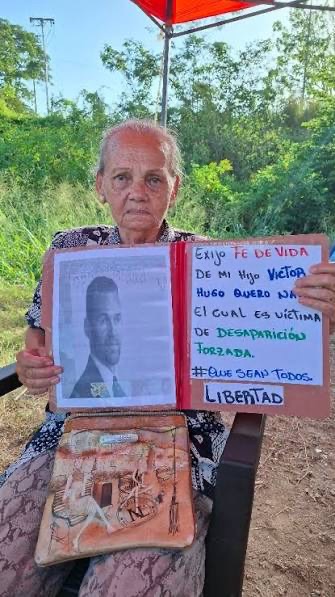 Exijo FE DE VIDA
DE MI HIJO VICTOR
HUGO QUERO NA
EL CUAL ES VÍCTIMA
DE DESAPARICIÓN
FORZADA.
#QUE SEAN TODOS.
LIBERTAD